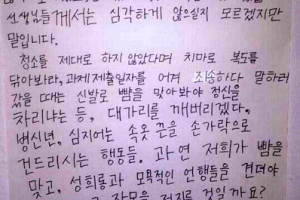 선생님들께서는 심각하게 않으실지 모르겠지만
말입니다.
청소를 제대로 하지 않았다며 치마로 복도를
닦아봐라, 과제제출일자를 어겨 죄송하다 말하러
갔을 때는 신발로 뺨을 맞아봐야 정신을
차리냐는 등, 대가리를 깨버리겠다,
병신년, 심지어는 속옷 끈을 손가락으로
건드리시는 행동들. 과연 저희가 뺨을
맞고, 성희롱과 모욕적인 언행들을 견뎌야
잘못을 저지른 것일까요?